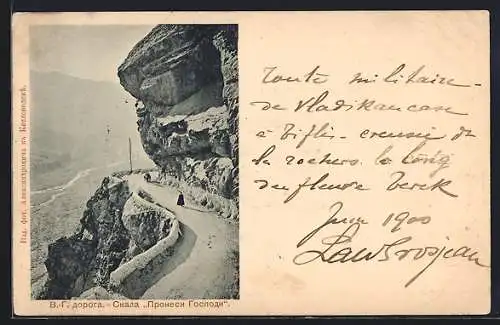 Изд. фот. Александровича въ Кисловодскѣ.
В.-Г. дорога. - Скала „Пронеси Господи“.
Route militaire -
de Vladikaucase
a Tiflis - creusée da
la rochers. le long
du fleuve Terek
Juin 1900
Grosjean